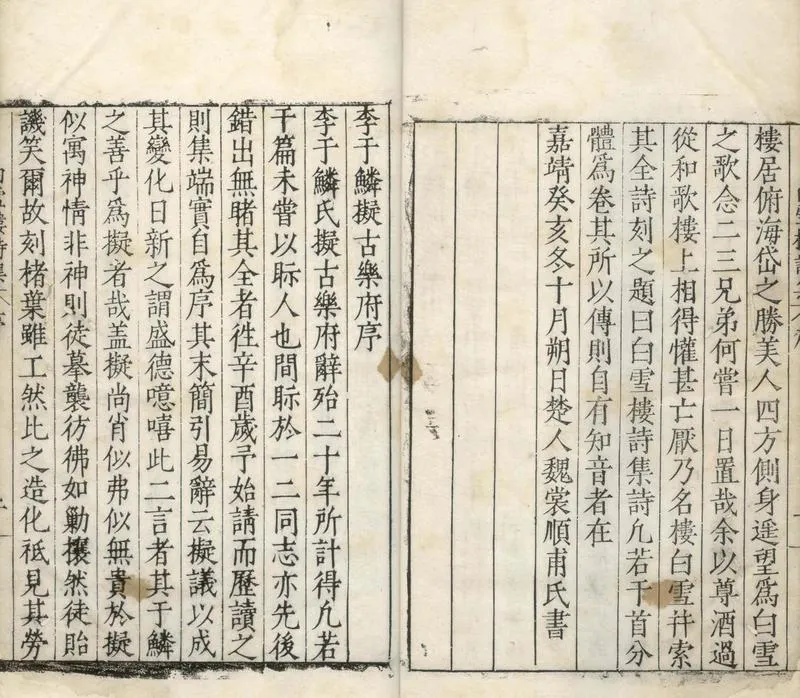 樓居俯海岱之勝美人四方側身遥望爲白雪
之歌念二三兄弟何嘗一日置哉余以尊酒過
從和歌樓上相得懽甚亡厭乃名樓白雪幷索
其全詩刻之題曰白雪樓詩集詩凢若干首分
體爲卷其所以傳則自有知音者在
嘉靖癸亥冬十月朔日楚人魏裳順甫氏書
李于鱗擬古樂府序
李于鱗氏擬古樂府辭殆二十年所計得凢若
千篇未嘗以眎人也間眎於一二同志亦先後
錯出無睹其全者徃辛酉歲予始請而歷讀之
則集端實自爲序其末簡引易辭云擬議以成
其變化日新之謂盛德噫嘻此二言者其于鱗
之善乎爲擬者哉盖擬尚肖似弗似無貴於擬
似寓神情非神則徒摹襲彷彿如勦攘然徒貽
譏笑爾故刻楮葉雖工然比之造化祗見其勞